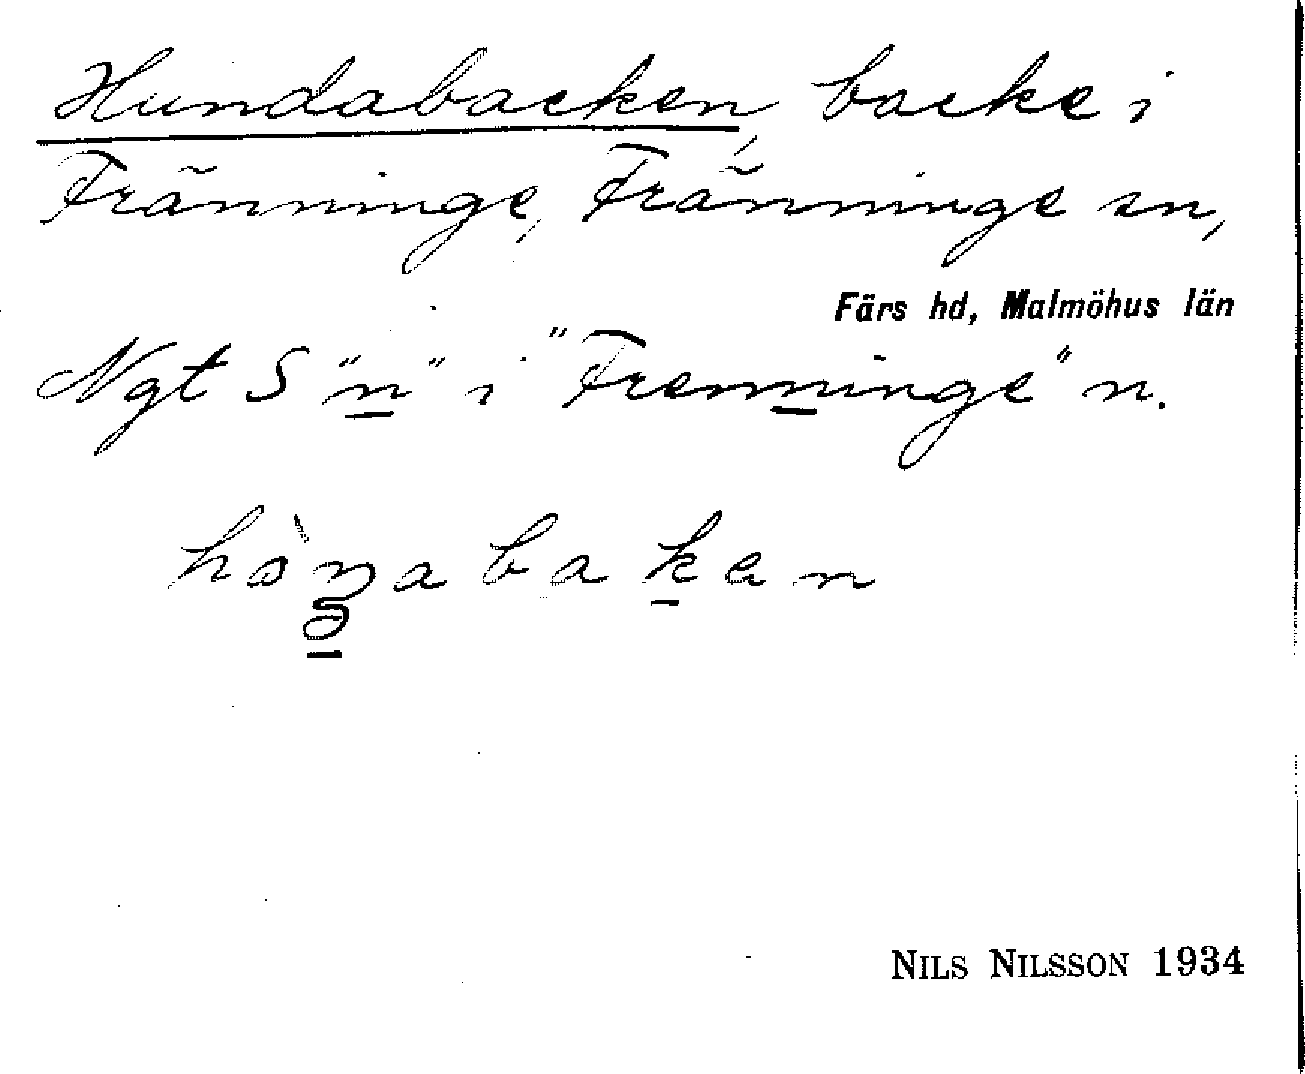 Hundabacken, backe i
Fränninge, Fränninge sn,
Färs hd, Malmöhus län
Ngt S "n" i "Frenninge" n.
NILS NILSSON 1934